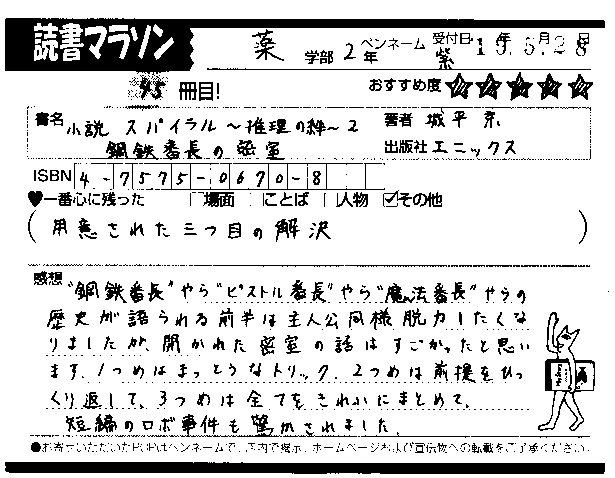 読書マラソン 薬 学部 2年 ペンネーム 紫 受付日 19年 5月28日
45 冊目! おすすめ度 ☆☆☆☆☆
書名 小説 スパイラル〜推理の絆〜2 著者 城平 京
鋼鉄番長の密室 出版社 エニックス
ISBN 4-7575-0670-8
♥一番心に残った □場面 □ことば □人物 ☑その他
(用意された三つ目の解決)
感想 "鋼鉄番長"やら"ピストル番長"やら"魔法番長"やらの
歴史が語られる前半は主人公同様脱力したくな
りましたが、開かれた密室の話はすごかったと思い
ます。1つめはまっとうなトリック、2つめは前提をひっ
くり返して、3つめは全てをきれいにまとめて。
短編のロボ事件も驚かされました。
●お寄せいただいたPOPはペンネームで、店内で掲示、ホームページおよび宣伝物への転載をご了承ください。